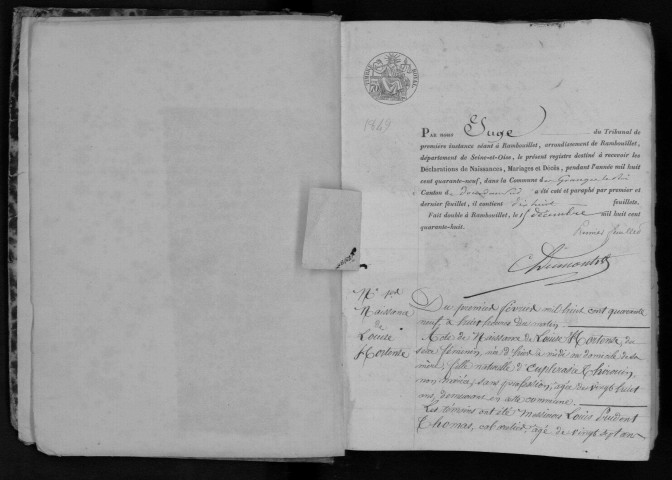 TIMBRE ROYAL
1849
PAR NOUS Juge du Tribunal de
première instance séant à Rambouillet, arrondissement de Rambouillet,
département de Seine-et-Oise, le présent registre destiné à recevoir les
Déclarations de Naissances, Mariages et Décès, pendant l'année mil huit
cent quarante-neuf, dans la Commune de
Canton de Dourdan a été coté et paraphé par premier et
dernier feuillet, il contient dix huit feuillets.
Fait double à Rambouillet, le 15 décembre mil huit cent
quarante-huit.
Premier feuillet
N° 1er
Naissance
de
Louise
Hortense
Du premier février mil huit cent quarante
neuf à huit heures du matin
Acte de Naissance de Louise Hortense du
sexe féminin, née d'hier à midi au domicile de sa
mère, fille naturelle d'Euphrasie
non mariée, sans profession, âgée de vingt huit
ans, demeurant en cette commune.
Les témoins ont été Messieurs Louis Prudent
Thomas, cabaretier, âgé de vingt sept ans